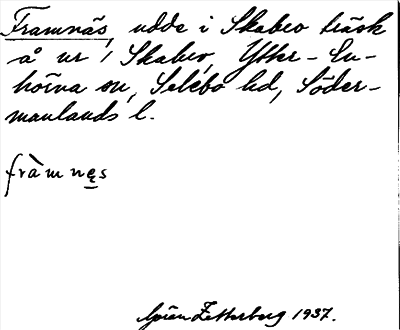 Framnäs, udde i Skabro träsk
å nr 1 Skabro, Ytter-En-
hörna sn, Selebo hd, Söder-
manlands l.
fràmnęs
Zetterberg 1937.